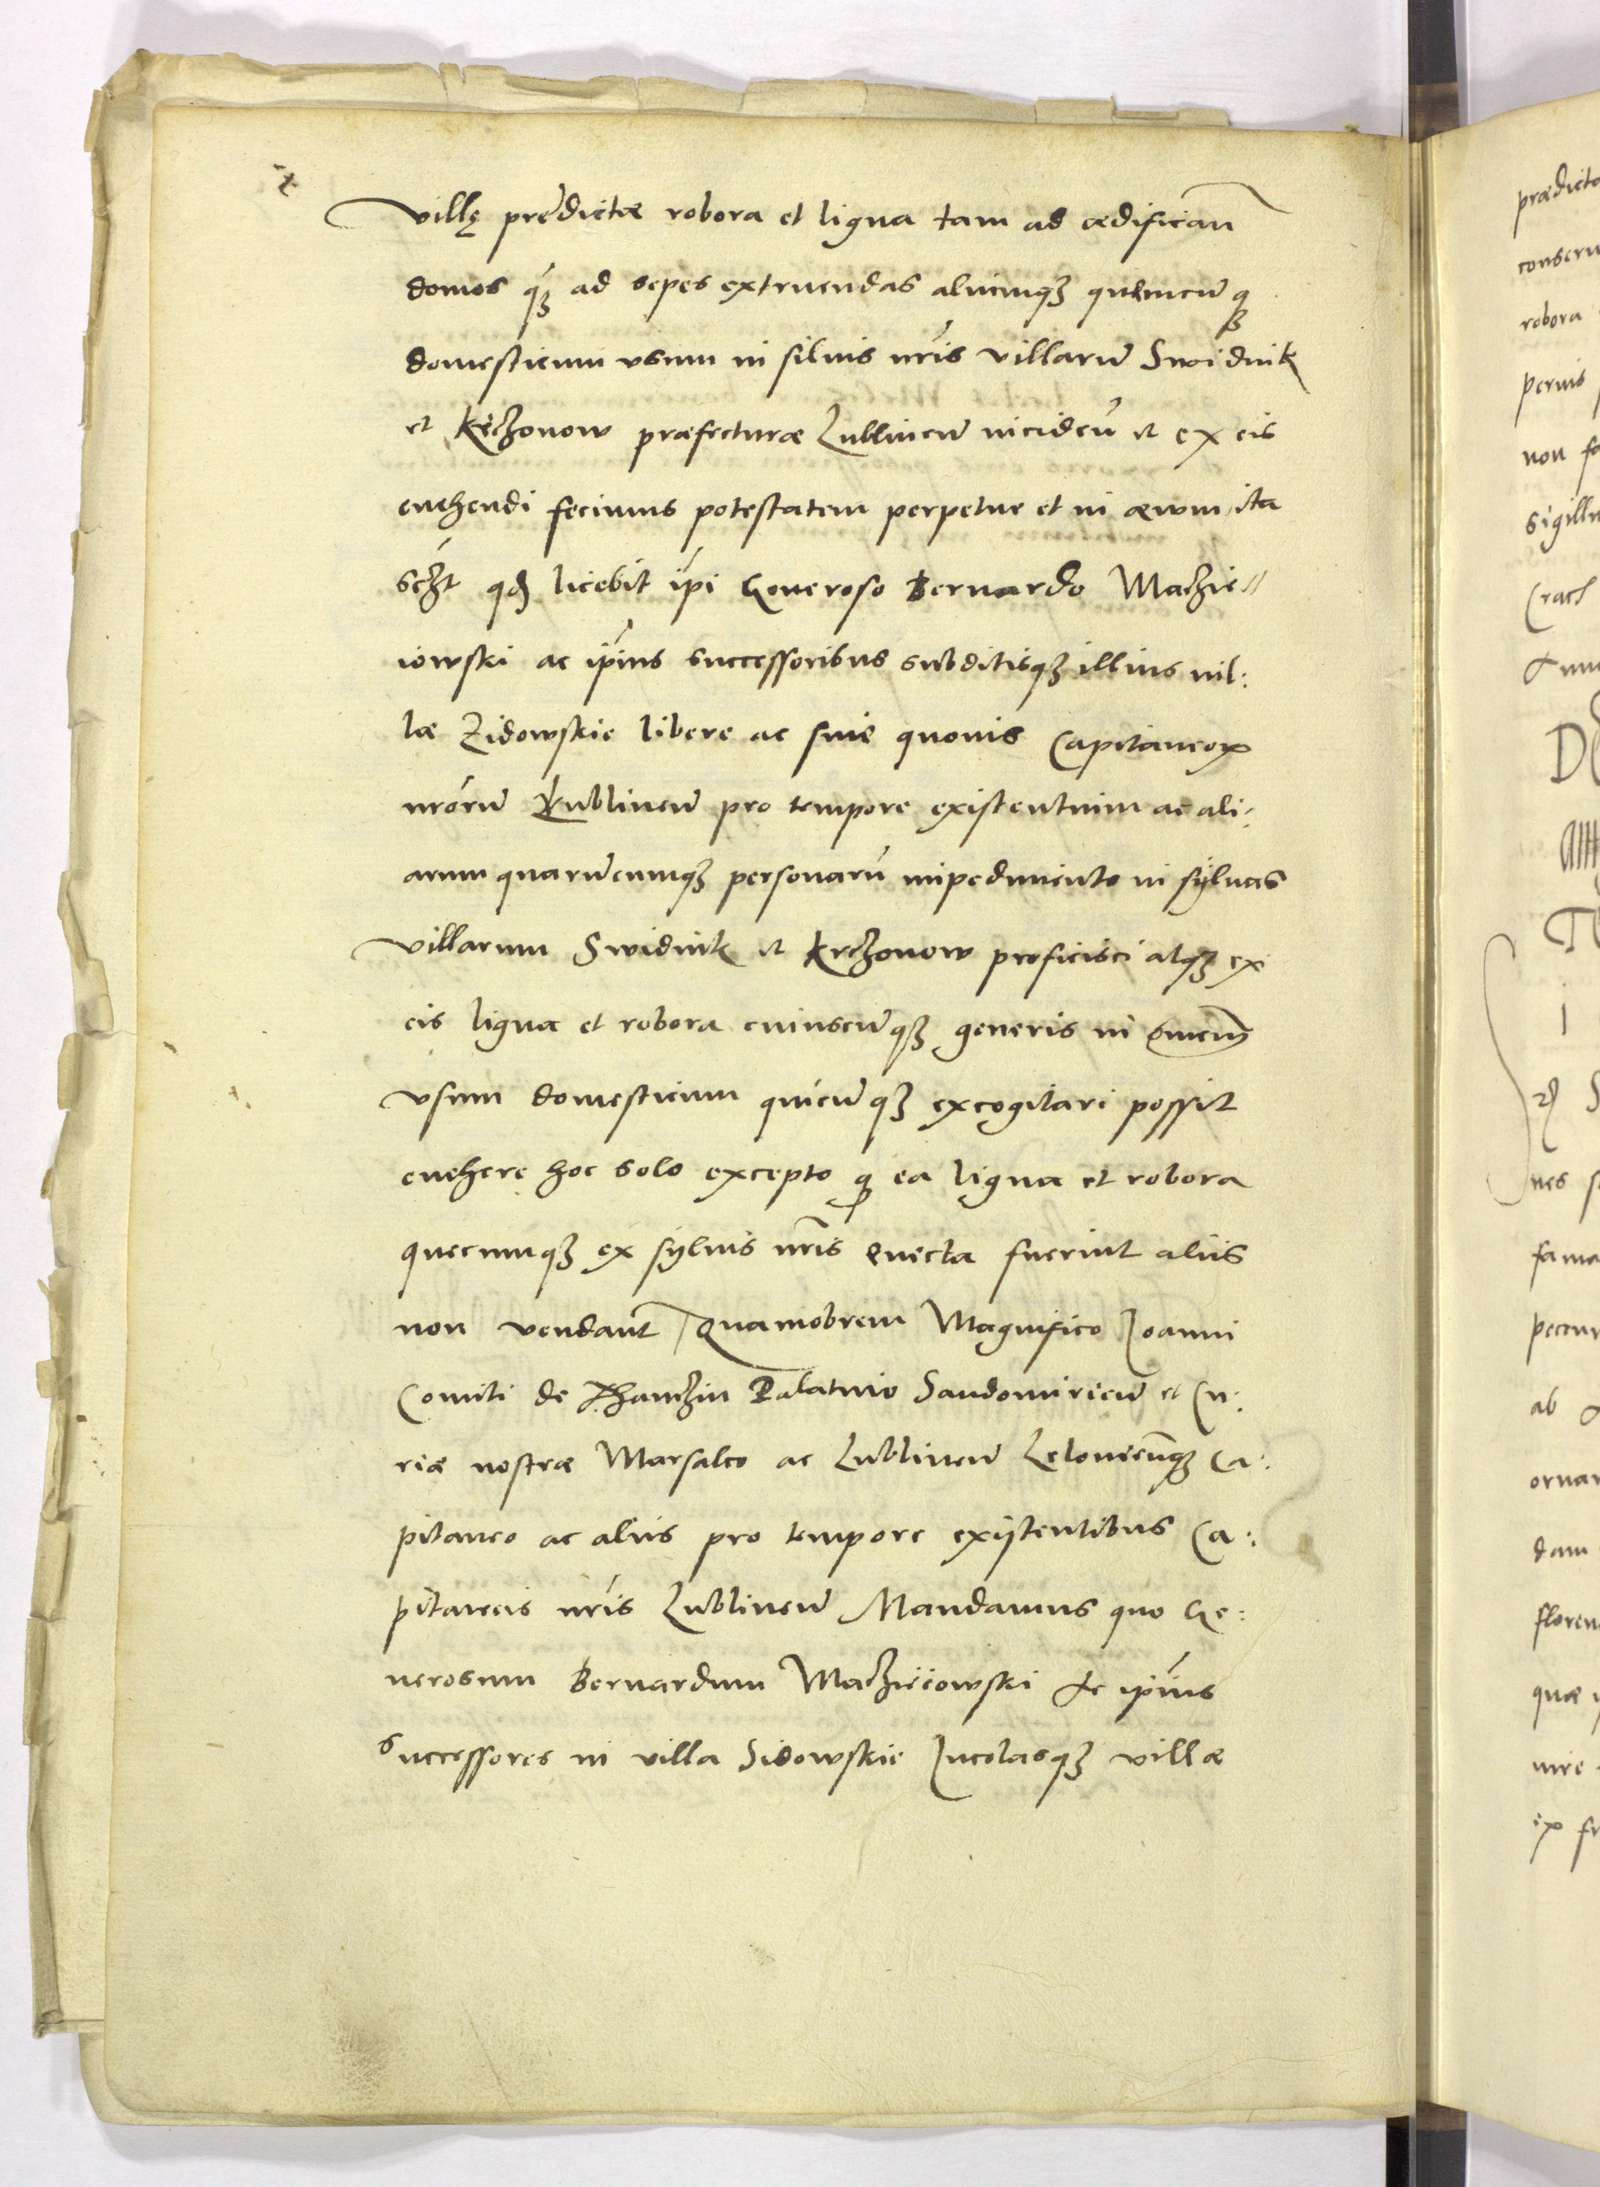 villę predictæ robora et ligna tam ad ædifican̄
domos q̃ʒ ad sepes extruendas aliumqʒ quemcūqʒ
domesticum vsum in siluis nr̃is villarū Swidnik
et Krczonow præfecturæ Lublineñ incideñ et ex eis
euehendi fecimus potestatem perpetue et in æwm ita
sczt qđ licebit ip̃i Generoso Bernardo Maczie//
iowski ac ip̃ius successoribus subditisqʒ illius uil:
læ Zidowskie libere ac sine quouis Capitaneoꝝ
nr̃orū Lublineñ pro tempore existentium ac ali:
arum quarūcumqʒ personarū impedimento in syluas
villarum Swidnik et Krczonow proficisci atqʒ ex
eis ligna et robora cuiuscūqʒ generis in om̄em
vsum domesticum quicūqʒ excogitari possit
euehere hoc solo excepto ꝙ ea ligna et robora
quecumqʒ ex syluis nr̃is euecta fuerint aliis
non vendant Quamobrem Magnifico Ioanni
Comiti de Thanczin Palatino Sandomirieñ et Cu:
riæ nostræ Marsalco ac Lublineñ Lelovieñqʒ Ca:
pitaneo ac aliis pro tempore existentibus Ca:
pitaneis nr̃is Lublineñ Mandamus quo Ge:
nerosum Bernardum Macziejowski Ac ip̃ius
Successores in villa Sidowskie Incolasqʒ villæ
prædicta
robora
non fa
Crac
nes
ab
dam
floren
quæ